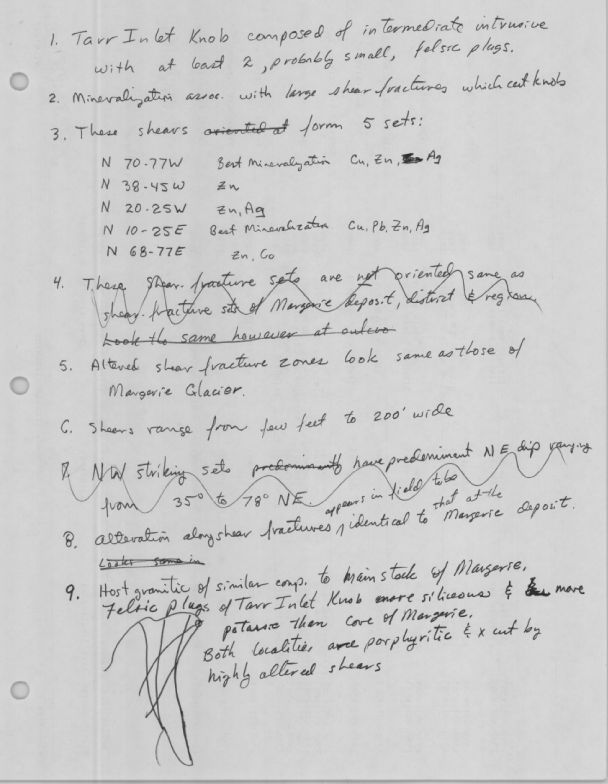 1. Tarr Inlet Knob composed of intermediate intrusive
with at least 2, probably small, felsic plugs.
2. Mineralization assoc. with large shear fractures which cut knob
3. These shears oriented at form 5 sets:
N 70-77W Best Mineralization Cu, Zn, Ag
N 38-45W Zn
N 20-25W Zn, Ag
N 10-25E Best Mineralization Cu, Pb, Zn, Ag
N 68-77E Zn, Co
4. These Shear-fracture sets are not oriented same as
shear-fracture sets of Margerie deposit, district & region
Look the same however at
5. Altered shear fracture zones look same as those of
Margerie Glacier.
6. Shears range from few feet to 200' wide
7. NW striking sets predominantly have predominent NE dip ranging
from 35° to 78° NE.
8. alteration along shear fractures, appears in field to be identical to that at the Margerie deposit.
Looks same in
9. Host granitic of similar comp. to main stock of Margerie.
Felsic plugs of Tarr Inlet Knob more siliceous & more
potassic than core of Margerie.
Both localities are porphyritic & x cut by
highly altered shears